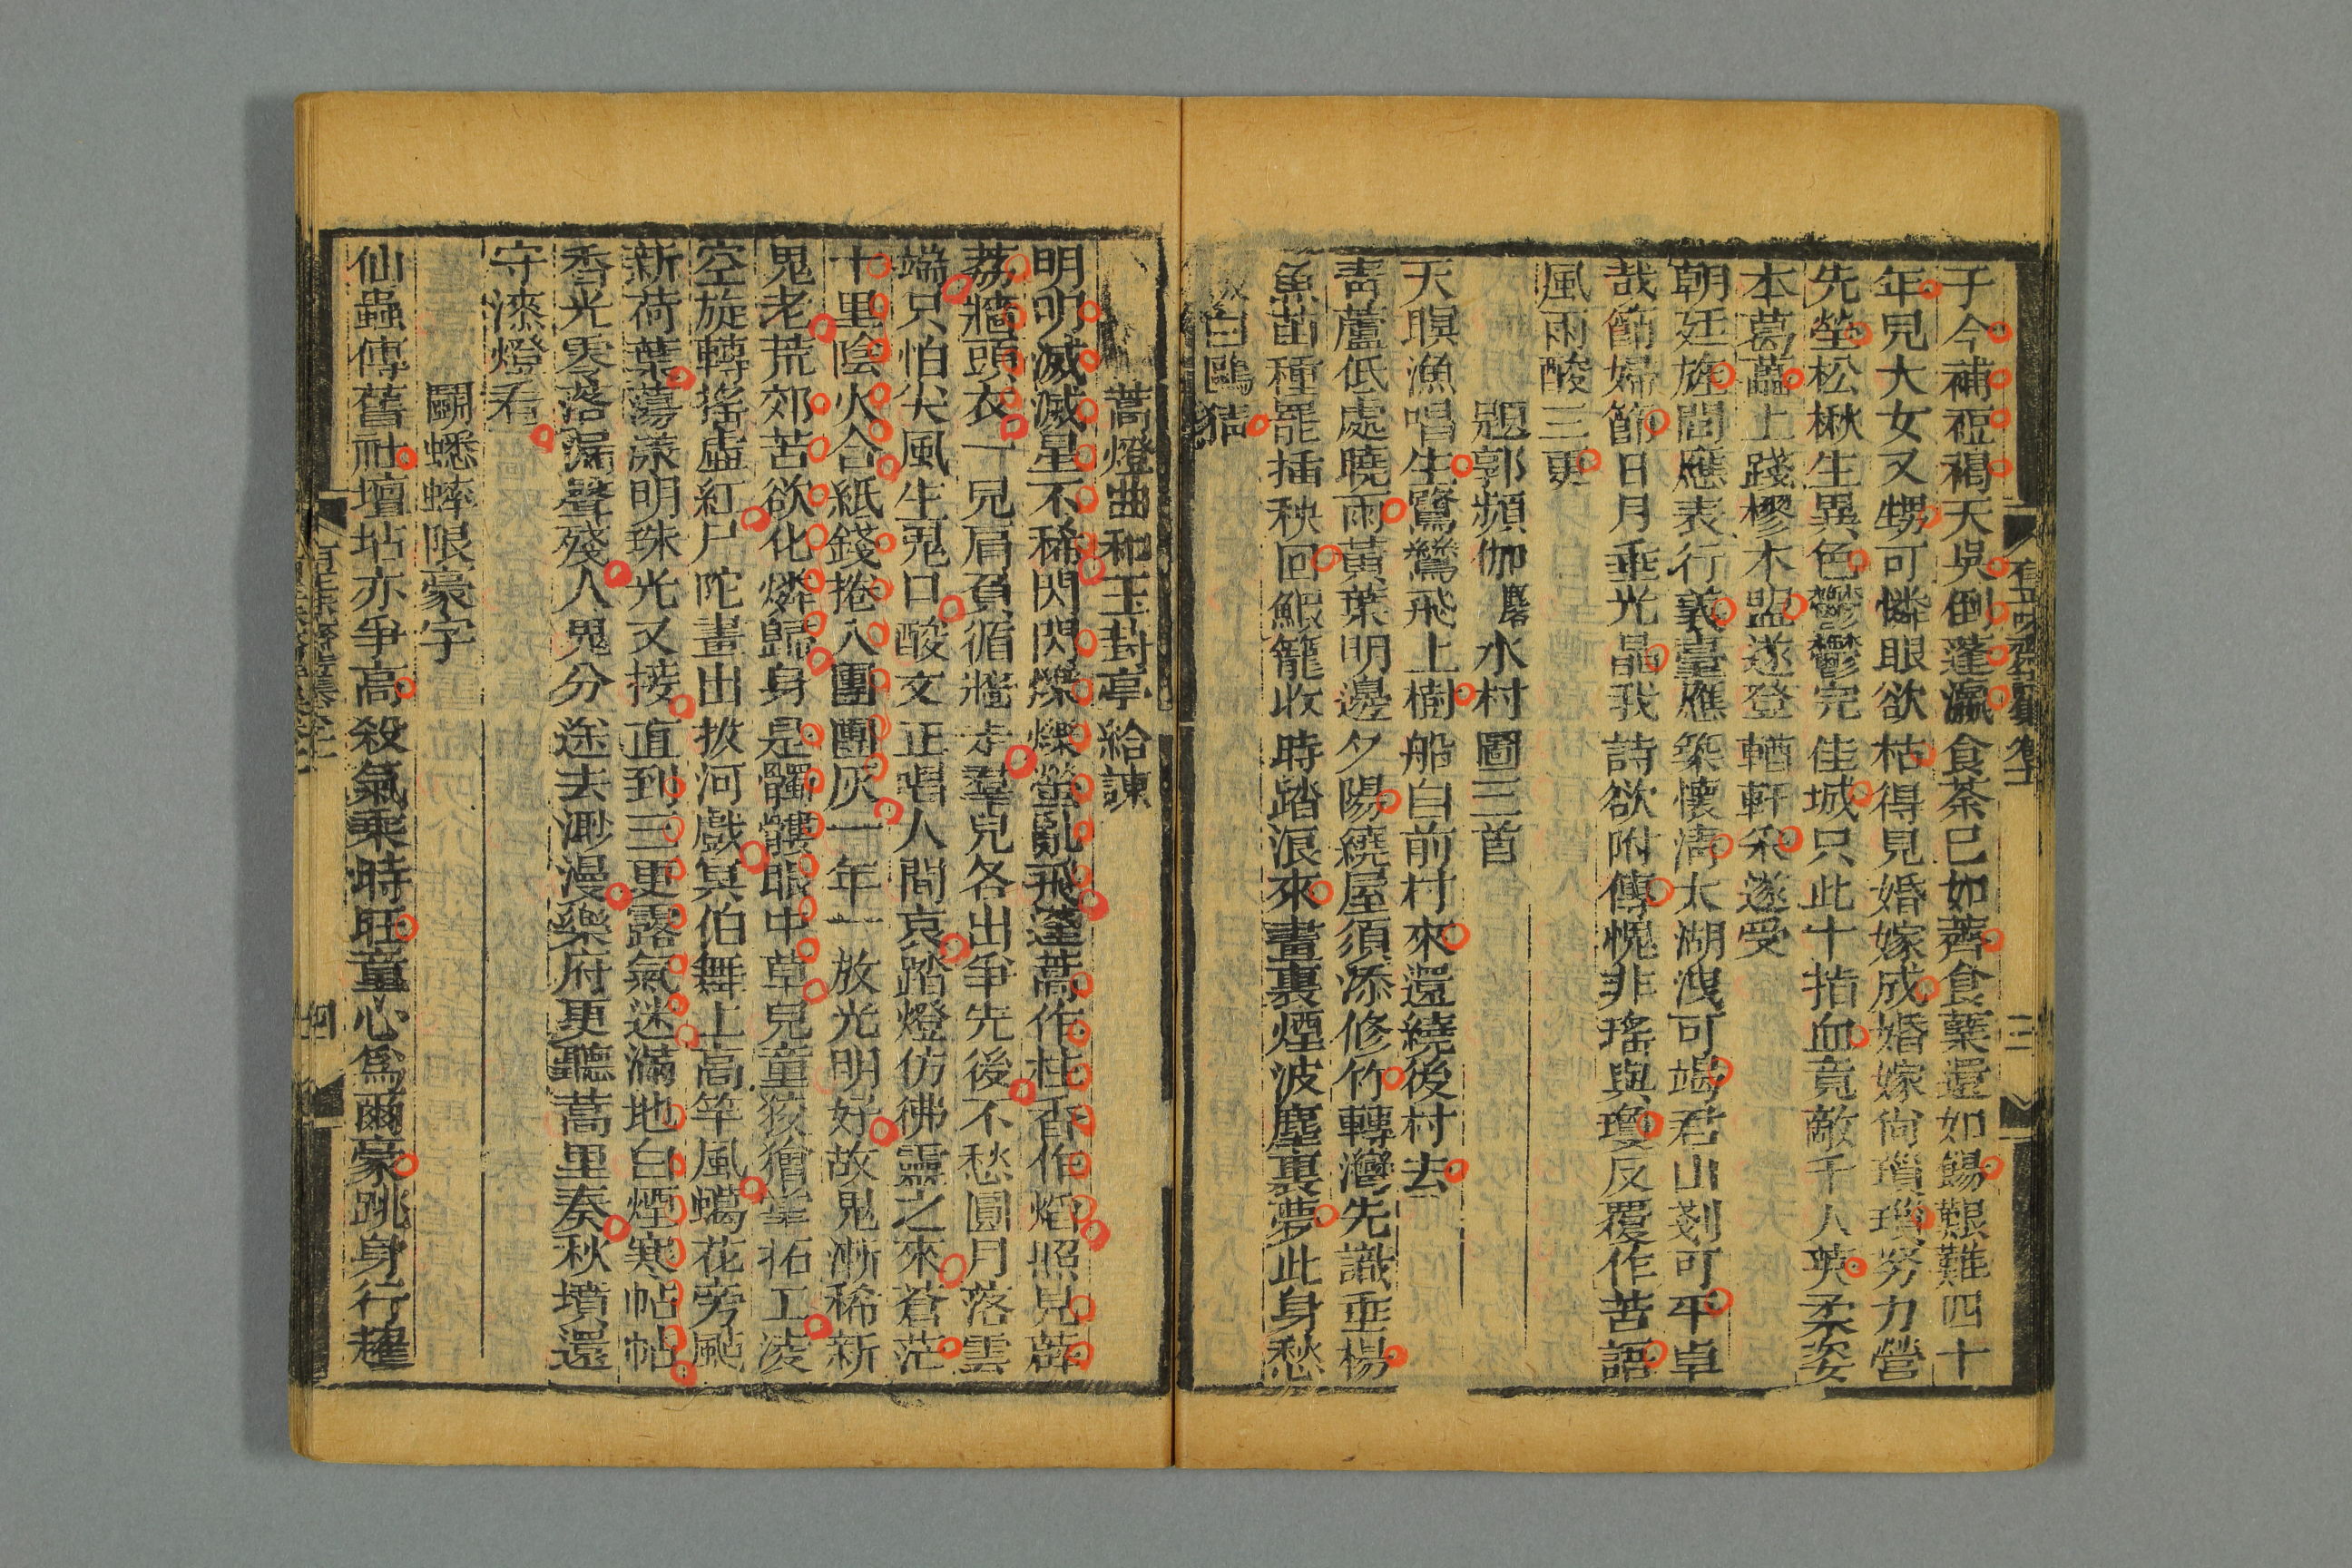 子今補裋褐天吳倒蓬瀛食荼已如薺食蘗還如餳艱難四十
年兒大女又甥可憐眼欲枯得見婚嫁成婚嫁尚瑣瑣努力營
先塋松楸生異色鬱鬱完佳城只此十指血竟敵千人英柔姿
本葛藟上踐樛木盟遂登輶軒采遂受
朝廷旌閭應表行義臺應築懷淸太湖洩可竭君山剗可平卓
哉節婦節日月垂光晶我詩欲附傳愧非瑤與瓊反覆作苦語
風雨酸三更
題郭頻伽水村圖三首
天暝漁唱生鷺鷥飛上樹船自前村來還繞後村去
靑蘆低處曉雨黃葉明邊夕陽繞屋須添修竹轉灣先識垂楊
魚苗種罷插秧回鰕籠收時踏浪來畫裏煙波塵裏夢此身愁
白鷗猜
蒿燈曲和王葑亭給諫
明明滅滅星不稀閃閃爍爍螢亂飛蓬蒿作炷香作熖照見薜
荔牆頭衣一兒肩負循牆走羣兒各出爭先後不愁圓月落雲
端只怕尖風生鬼口酸文正唱人間哀踏燈仿彿靈之來蒼茫
十里陰火合紙錢捲入團團灰一年一放光明好故鬼漸稀新
鬼老荒郊苦欲化燐歸身是髑髏眼中草兒童狡獪掌拓工凌
空旋轉搖虛紅尸陀畫出拔河戲冥伯舞上高竿風蠋花旁颭
新荷葉蕩漾明珠光又接直到三更露氣迷滿地白煙寒帖帖
香光零落漏聲殘人鬼分途去渺漫樂府更聽蒿里奏秋墳還
守漆燈看
鬬蟋蟀限豪字
仙蟲傳舊社壇坫亦爭高殺氣乘時旺童心爲爾豪跳身行趯